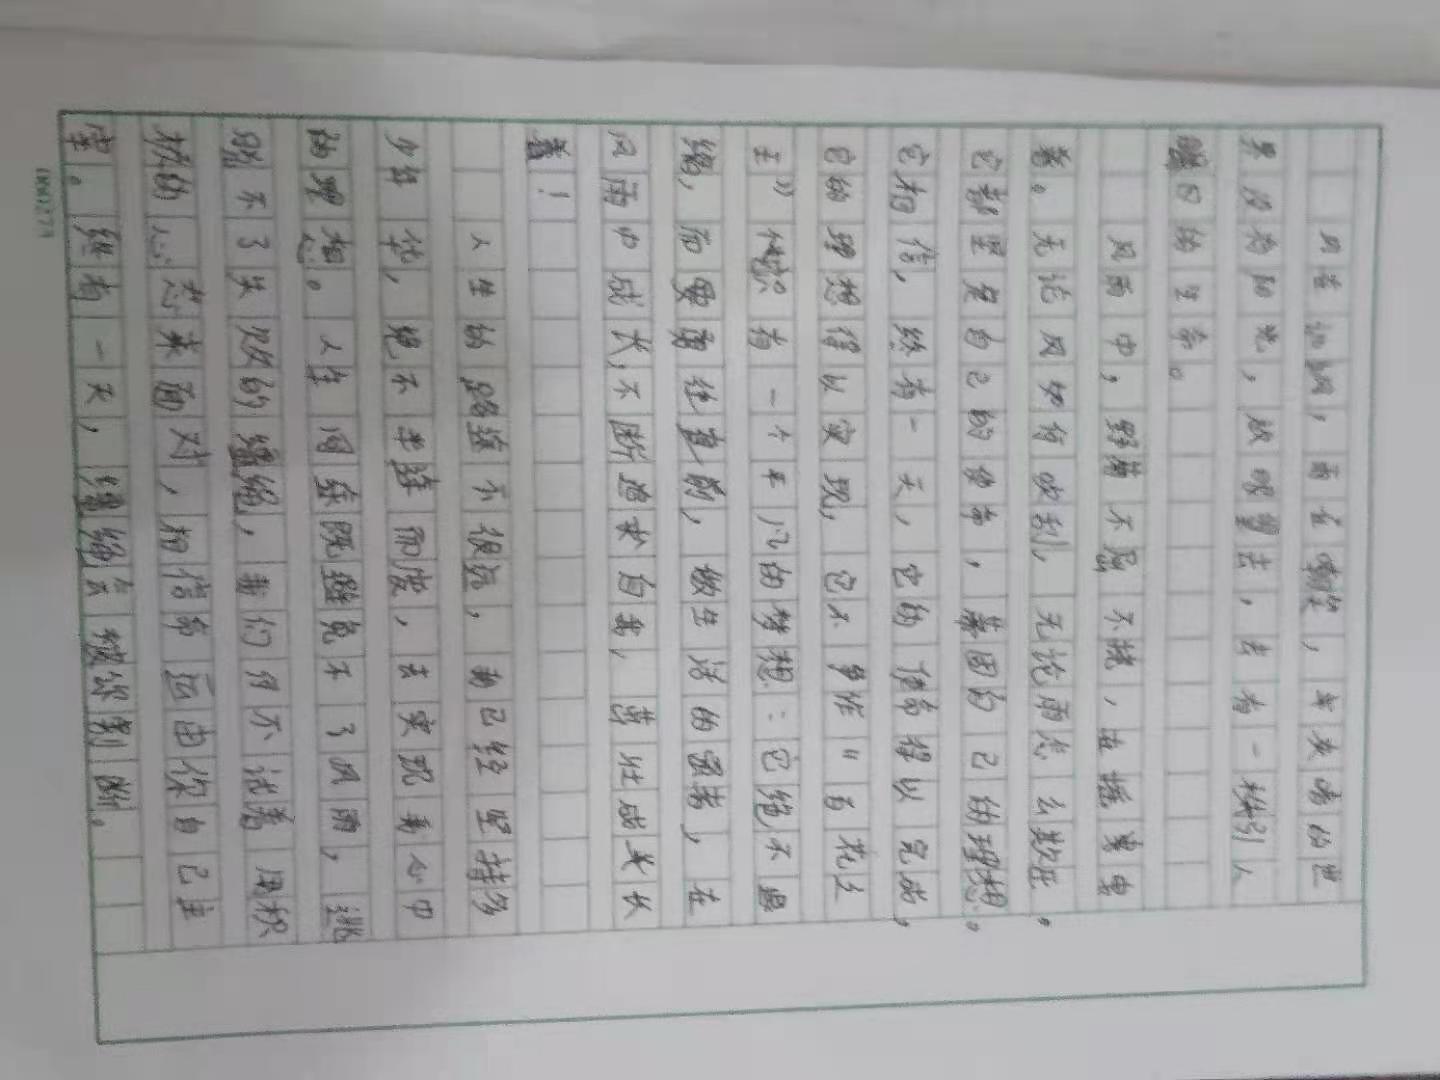 风在汹涌，雨在嘶吼，年久暗的世
界没有阳光，放眼望去，去有一株引人
瞩目的生命。
风雨中，野菊不屈不挠，
着。无论风如何吹刮，无论雨怎么敲座，
它都坚定自己的使命，巩固自己的理想。
它相信，终有一天，它的使命得以完成，
它的理想得以实现，它不争作“百花之
王”候只有一个平凡的梦想：它绝不退
缩，而要勇往直前，做生活的强者，在
风雨中成长，不断追求自我，茁壮成长
着！
人生的路途不很远，我已经坚持多
少年华，绝不半途而废，去实现我心中
的理想。人生同途既避免不了风雨，逃
脱不了失败的缰绳，我们何不试着用积
极的心态来面对，相信命运由你自己主
宰。终有一天，缰绳会被你割断。